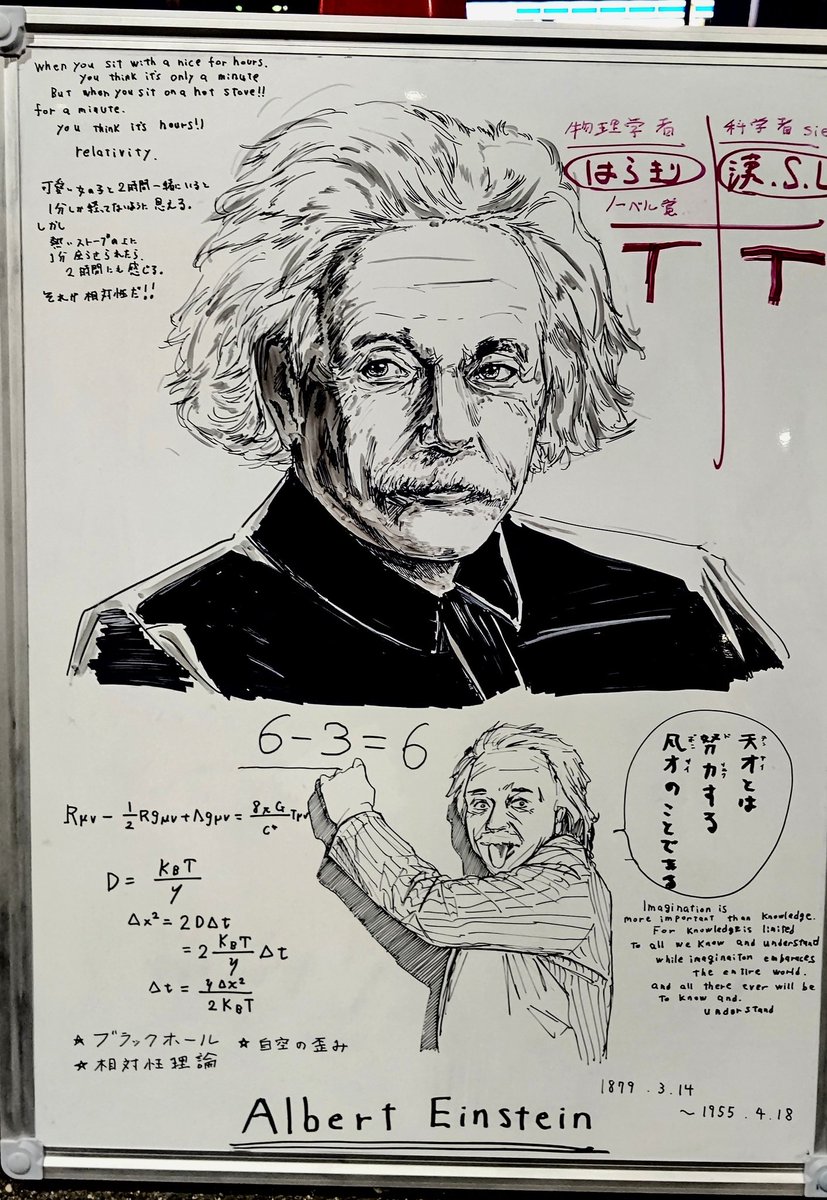 When you sit with a nice for hours.
you think it's only a minute
But when you sit on a hot stove!!
for a minute.
you think it's hours!!
relativity.
可愛い女の子と2時間一緒にいると
1分しか経ってないように思える。
しかし
熱いストーブの上に
1分座らせられたら、
2時間にも感じる。
それが相対性だ!!
物理学者
はらきり
ノーベル賞
T
科学者 sie
漢.S.L
T
6-3=6
Rμν - 1/2 Rgμν + Λgμν = 8πG/c⁴ Tμν
D = KBT/γ
Δx² = 2DΔt
= 2 KBT/γ Δt
Δt = γΔx²/2KBT
☆ ブラックホール ☆ 自空の歪み
☆ 相対性理論
天才とは
努力する
凡才のことである
Imagination is
more important than knowledge.
For knowledge is limited
To all we know and understand
while imaginaiton embaraces
the entire world.
and all there ever will be
To know and.
understand
1879.3.14
～1955.4.18
Albert Einstein